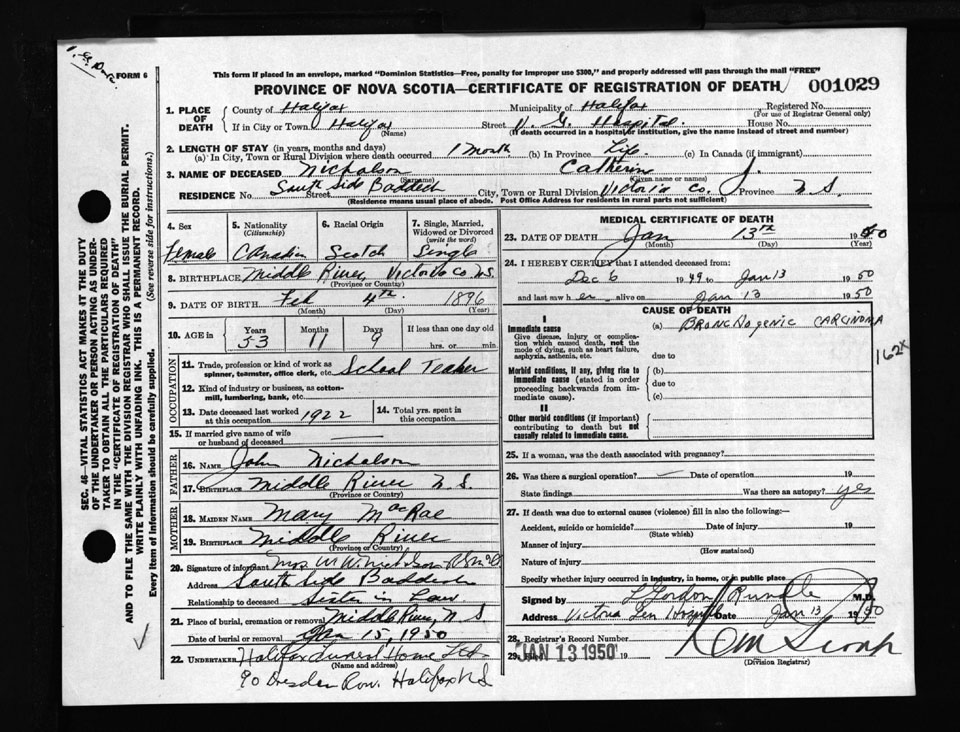 FORM 6
This form if placed in an envelope, marked "Dominion Statistics—Free, penalty for improper use $300," and properly addressed will pass through the mail "FREE"
PROVINCE OF NOVA SCOTIA—CERTIFICATE OF REGISTRATION OF DEATH 001029
1. PLACE OF DEATH County of Halifax Municipality of Halifax Registered No. (For use of Registrar General only)
If in City or Town Halifax (Name) Street V. G. Hospital. House No.
(If death occurred in a hospital or institution, give the name instead of street and number)
2. LENGTH OF STAY (in years, months and days)
(a) In City, Town or Rural Division where death occurred 1 Month (b) In Province Life. (c) In Canada (if immigrant)
3. NAME OF DECEASED Nicholson (Surname) Catherine J. (Given name or names)
RESIDENCE No. Street South Side Baddeck City, Town or Rural Division Victoria Co. Province N S
(Residence means usual place of abode. Post Office Address for residents in rural parts not sufficient)
4. Sex Female
5. Nationality (Citizenship) Canadian
6. Racial Origin Scotch
7. Single, Married, Widowed or Divorced (write the word) Single
8. BIRTHPLACE Middle River, Victoria Co N.S. (Province or Country)
9. DATE OF BIRTH Feb 4th 1896 (Month) (Day) (Year)
10. AGE in Years 53 Months 11 Days 9 If less than one day old hrs. or min.
OCCUPATION
11. Trade, profession or kind of work as spinner, teamster, office clerk, etc. School Teacher
12. Kind of industry or business, as cotton-mill, lumbering, bank, etc.
13. Date deceased last worked at this occupation 1922
14. Total yrs. spent in this occupation
15. If married give name of wife or husband of deceased —
FATHER
16. Name John Nicholson
17. Birthplace Middle River N.S. (Province or Country)
MOTHER
18. Maiden Name Mary MacRae
19. Birthplace Middle River (Province or Country)
20. Signature of informant Mrs M W. Nicholson
Address South Side Baddeck
Relationship to deceased Sister in Law
21. Place of burial, cremation or removal Middle River, N S
Date of burial or removal Jan 15, 1950
22. UNDERTAKER Halifax Funeral Home Ltd (Name and address)
90 Dresden Row. Halifax N S
MEDICAL CERTIFICATE OF DEATH
23. DATE OF DEATH Jan 13th 1950 (Month) (Day) (Year)
24. I HEREBY CERTIFY that I attended deceased from:
Dec 6 1949 to Jan 13 1950
and last saw h er alive on Jan 13 1950
CAUSE OF DEATH
I
Immediate cause (a) BRONCHOGENIC CARCINOMA
Give disease, injury or complication which caused death, not the mode of dying, such as heart failure, asphyxia, asthenia, etc. due to
162x
Morbid conditions, if any, giving rise to immediate cause (stated in order proceeding backwards from immediate cause). (b) due to (c)
II
Other morbid conditions (if important) contributing to death but not causally related to immediate cause.
25. If a woman, was the death associated with pregnancy?
26. Was there a surgical operation? — Date of operation 19
State findings Was there an autopsy? yes
27. If death was due to external causes (violence) fill in also the following:—
Accident, suicide or homicide? (State which) Date of injury 19
Manner of injury (How sustained)
Nature of injury
Specify whether injury occurred in industry, in home, or in public place
Signed by L Gordon Rundle M.D.
Address Victoria Gen Hospital Date Jan 13 1950
28. Registrar's Record Number
29. JAN 13 1950 19
(Division Registrar)
SEC. 46—VITAL STATISTICS ACT MAKES IT THE DUTY OF THE UNDERTAKER OR PERSON ACTING AS UNDERTAKER TO OBTAIN ALL THE PARTICULARS REQUIRED IN THE "CERTIFICATE OF REGISTRATION OF DEATH" AND TO FILE THE SAME WITH THE DIVISION REGISTRAR WHO SHALL ISSUE THE BURIAL PERMIT.
WRITE PLAINLY WITH UNFADING INK. THIS IS A PERMANENT RECORD.
Every item of Information should be carefully supplied. (See reverse side for instructions.)